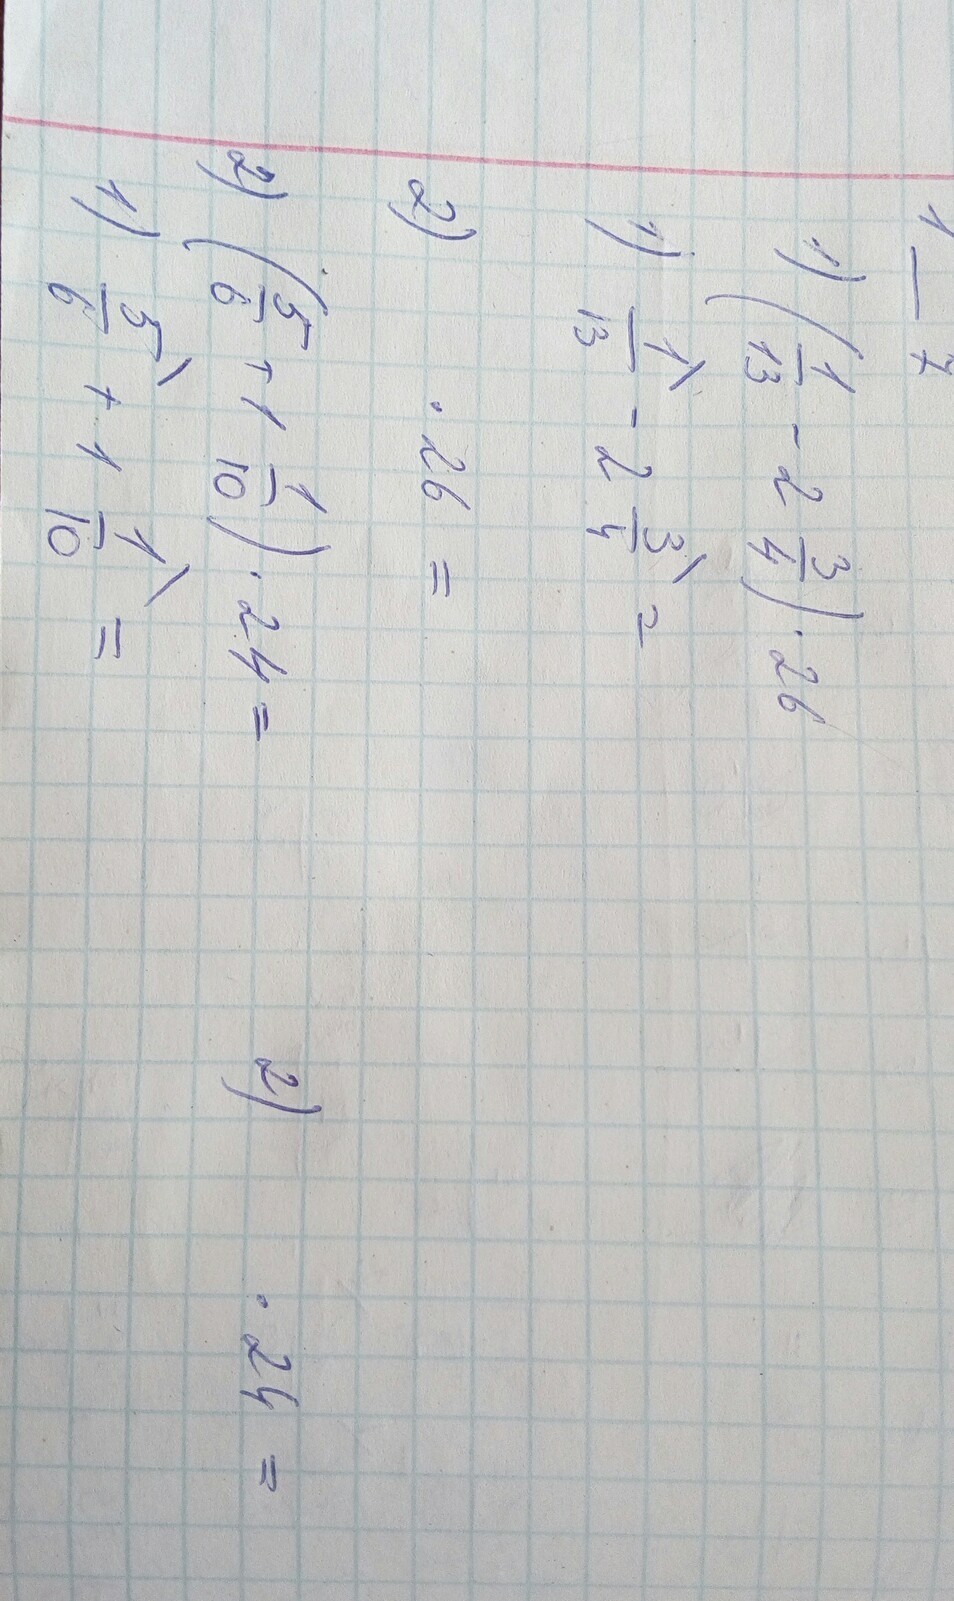 1 — 7
1) (1/13 - 2 3/4) · 26
1) 1/13 - 2 3/4 =
2) · 26 =
2) (5/6 + 1 1/10) · 24 =
2) · 24 =
1) 5/6 + 1 1/10 =